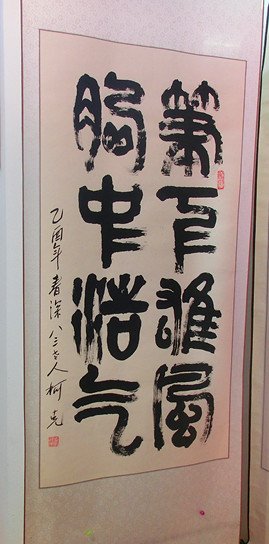 筆下雄風
胸中浩气
乙酉年春深八三老人柯克